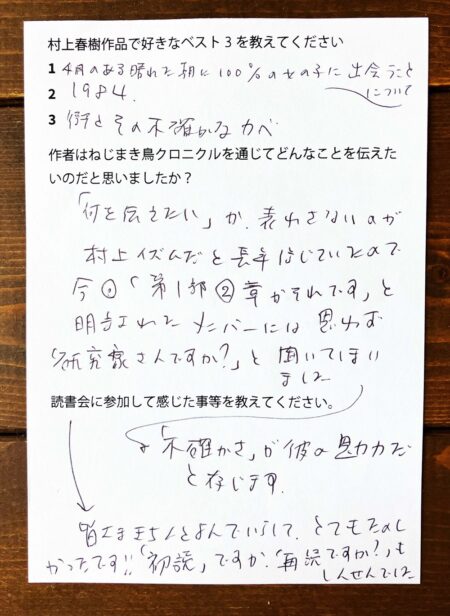 村上春樹作品で好きなベスト3を教えてください
1 4月のある晴れた朝に100%の女の子に出会うこと
について
2 1984.
3 街とその不確かなカベ
作者はねじまき鳥クロニクルを通じてどんなことを伝えた
いのだと思いましたか？
「何を伝えたい」か、表わさないのが
村上イズムだと長年信じていたので
今回、「第1部②章がそれです」と
明言されたメンバーには思わず
「研究家さんですか？」と聞いてしまい
ました
読書会に参加して感じた事等を教えてください。
「不確かさ」が彼の魅力だ
と存じます.
皆さまきちんとよんでいらして、とてもたのし
かったです!!「初読」ですか、「再読ですか？」も
しんせんでした